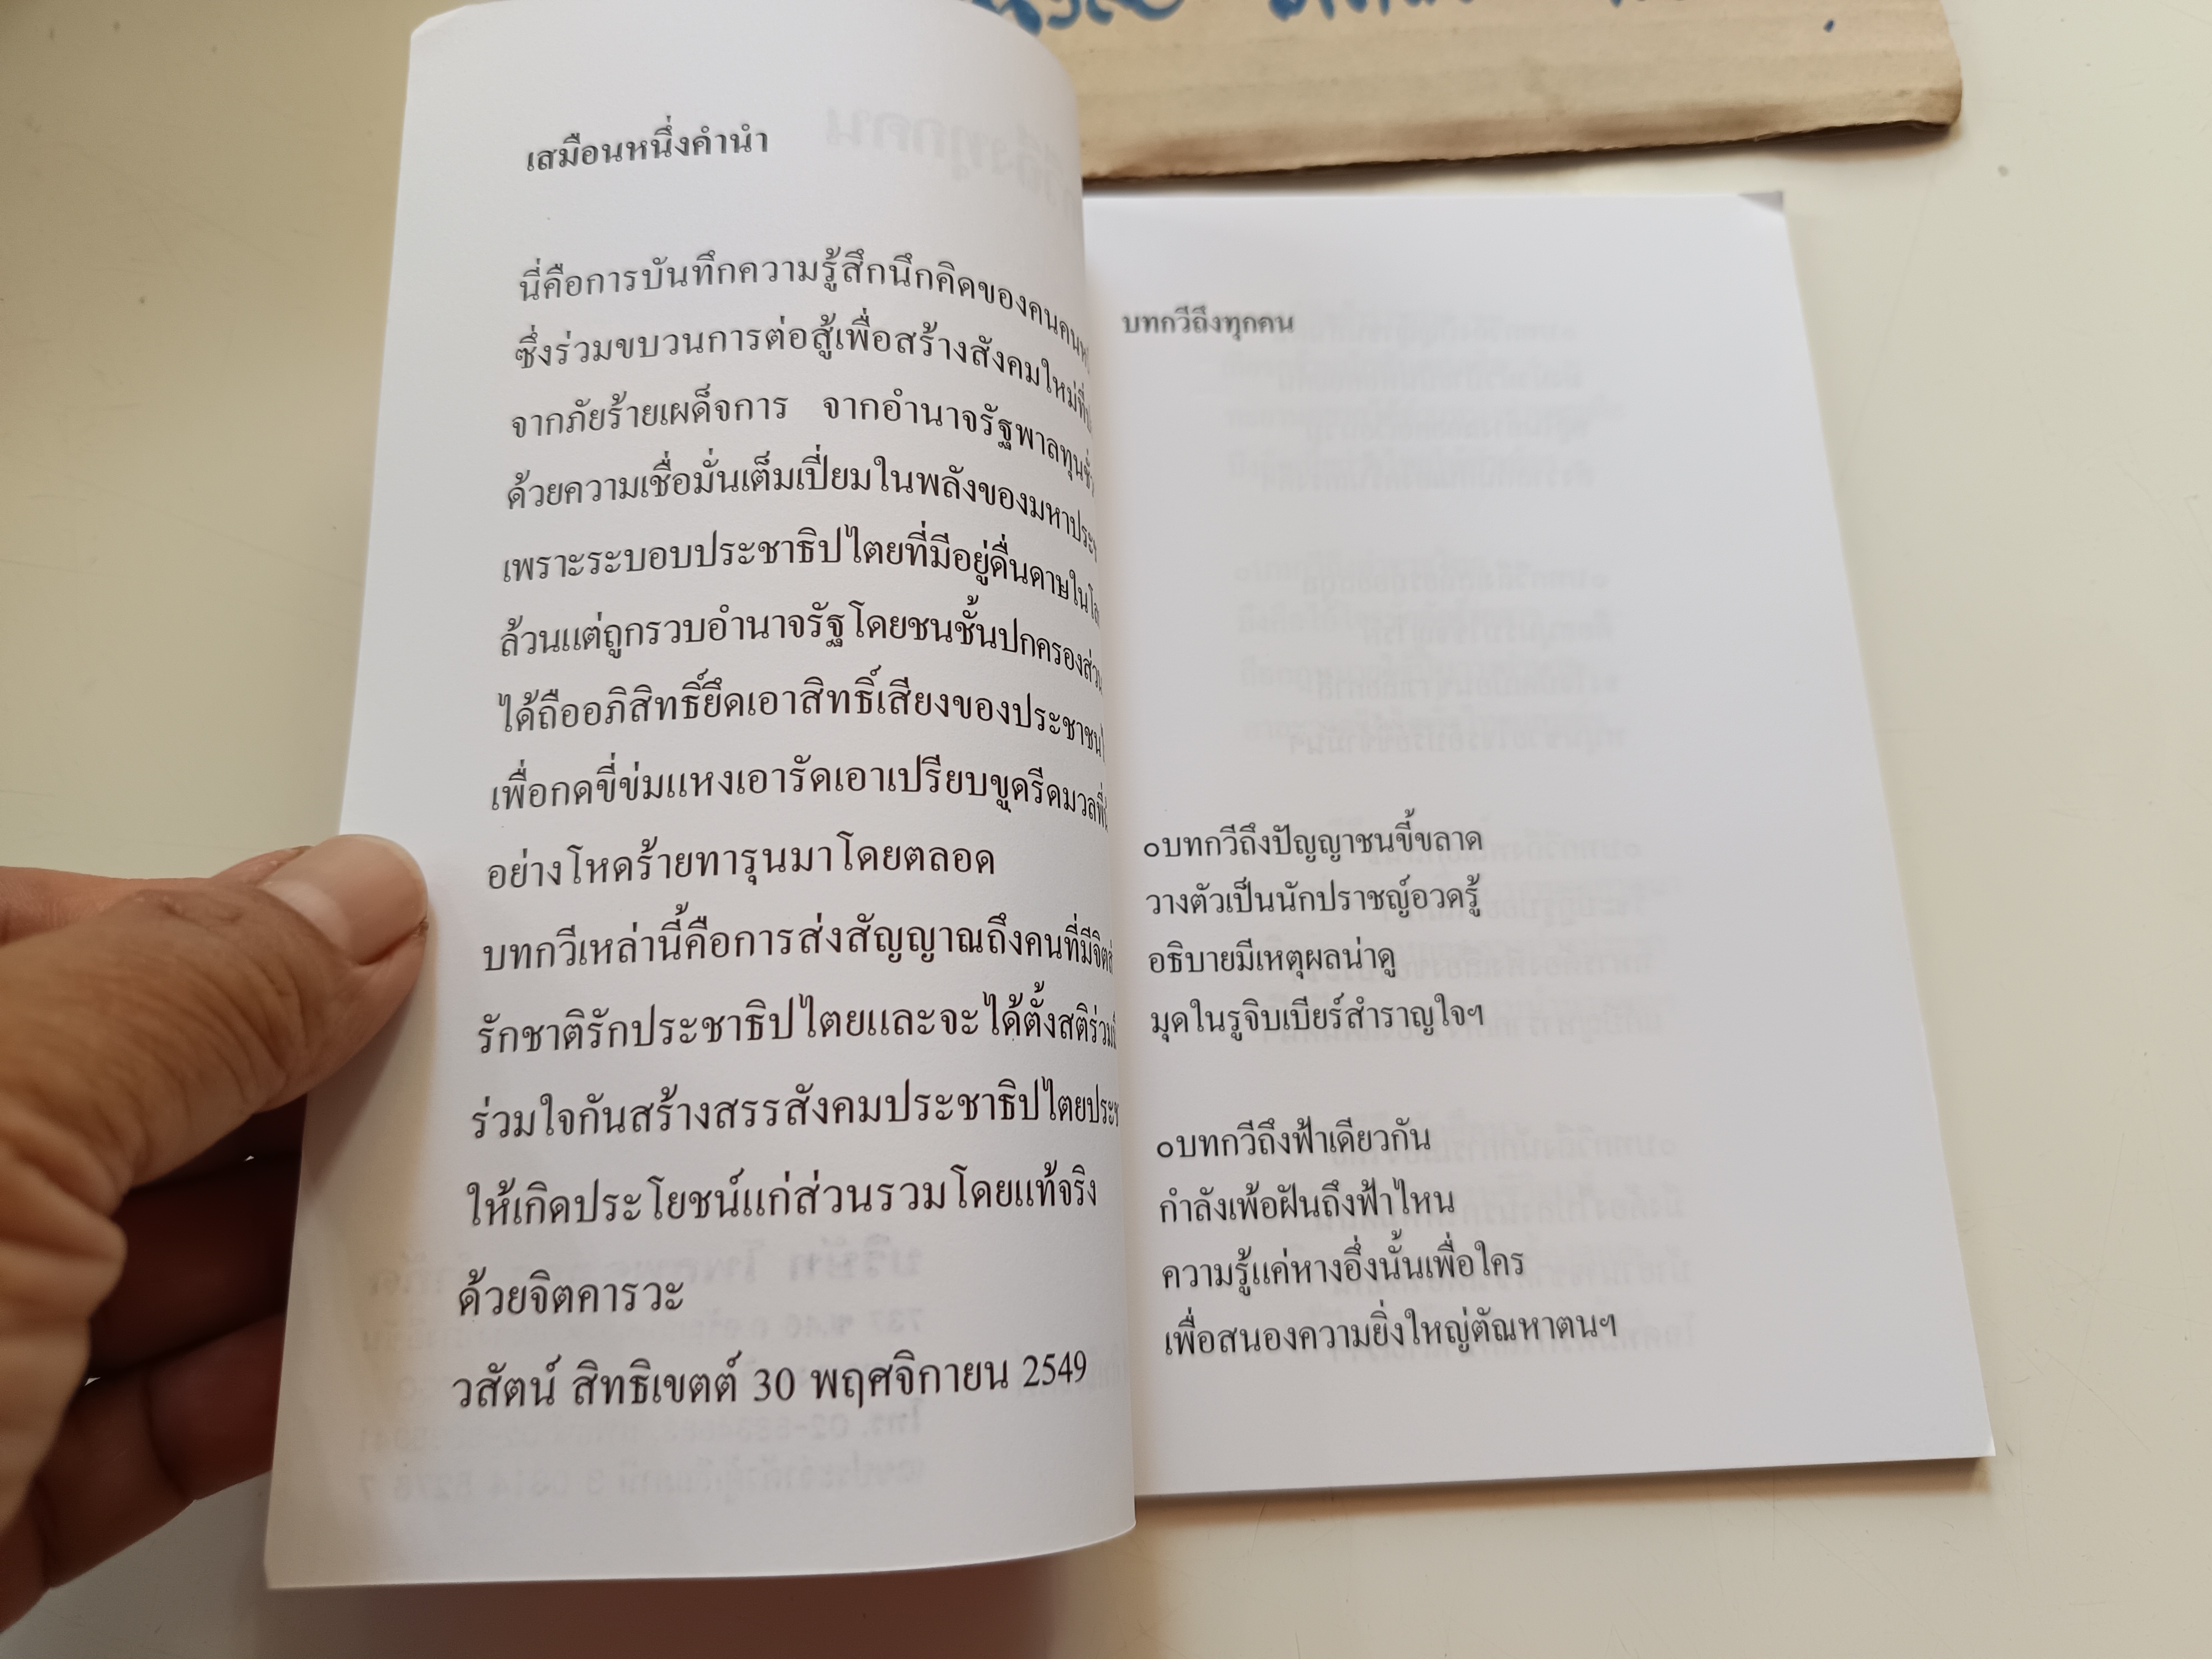 เสมือนหนึ่งคำนำ
นี่คือการบันทึกความรู้สึกนึกคิดของคนคน
ซึ่งร่วมขบวนการต่อสู้เพื่อสร้างสังคมใหม่ที่
จากภัยร้ายเผด็จการ จากอำนาจรัฐพาลทุน
ด้วยความเชื่อมั่นเต็มเปี่ยมในพลังของมหา
เพราะระบอบประชาธิปไตยที่มีอยู่ดื่นดาษใน
ล้วนแต่ถูกรวบอำนาจรัฐโดยชนชั้นปกครองส่วน
ได้ถืออภิสิทธิ์ยึดเอาสิทธิ์เสียงของประชาชน
เพื่อกดขี่ข่มแหงเอารัดเอาเปรียบขูดรีดมวล
อย่างโหดร้ายทารุนมาโดยตลอด
บทกวีเหล่านี้คือการส่งสัญญาณถึงคนที่มี
รักชาติรักประชาธิปไตยและจะได้ตั้งสติ
ร่วมใจกันสร้างสรรสังคมประชาธิปไตย
ให้เกิดประโยชน์แก่ส่วนรวมโดยแท้จริง
ด้วยจิตคารวะ
วสัตน์ สิทธิเขตต์ 30 พฤศจิกายน 2549
บทกวีถึงทุกคน
๐บทกวีถึงปัญญาชนขี้ขลาด
วางตัวเป็นนักปราชญ์อวดรู้
อธิบายมีเหตุผลน่าดู
มุดในรูจิบเบียร์สำราญใจฯ
๐บทกวีถึงฟ้าเดียวกัน
กำลังเพ้อฝันถึงฟ้าไหน
ความรู้แค่หางอึ่งนั้นเพื่อใคร
เพื่อสนองความยิ่งใหญ่ตัณหาตนฯ